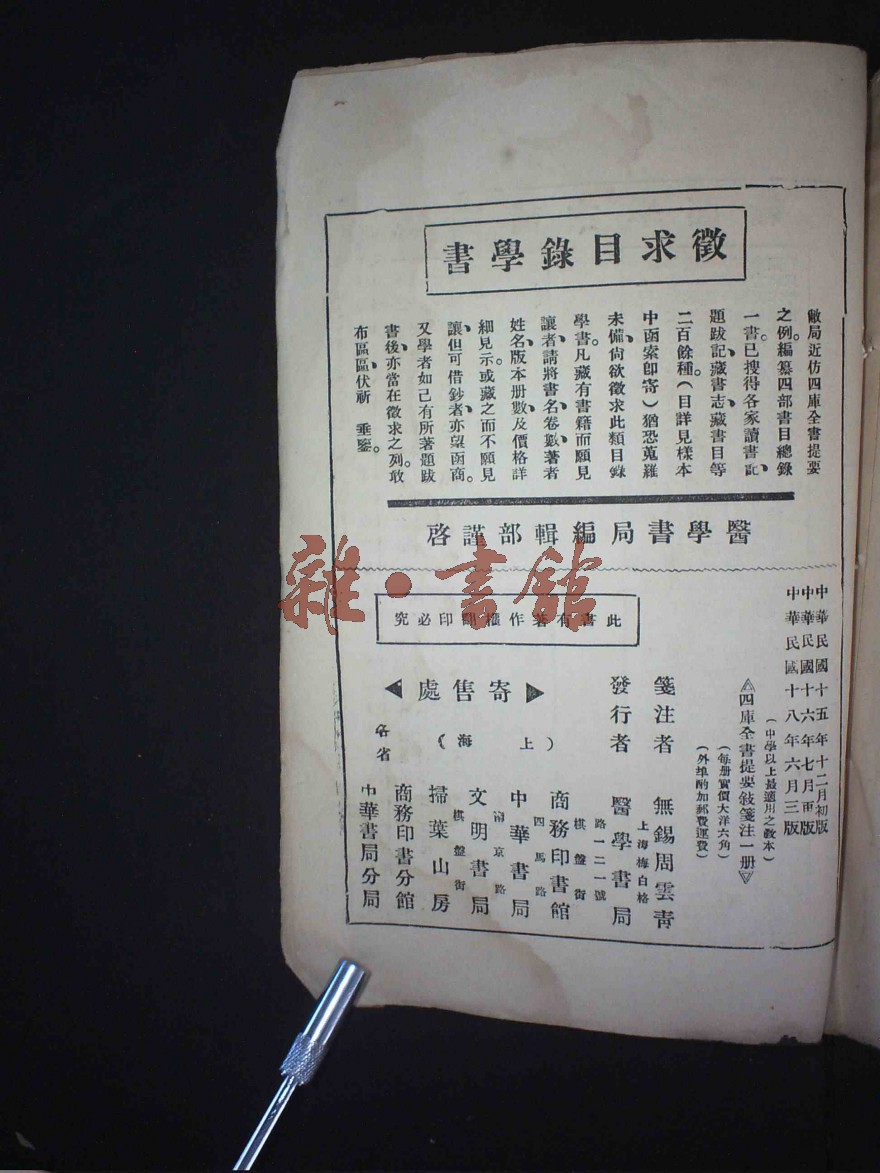 徵求目錄學書
敝局近仿四庫全書提要
之例。編纂四部書目總錄
一書。已搜得各家讀書記、
題跋記、藏書志、藏書目等
二百餘種。(目詳見樣本
中函索即寄)猶恐蒐羅
未備、尙欲徵求此類目錄
學書。凡藏有書籍而願見
讓者、請將書名、卷數、著者
姓名、版本、册數、及價格詳
細見示。或藏之而不願見
讓、但可借鈔者、亦望函商。
又學者如己有所著題跋
書後、亦當在徵求之列。敢
布區區、伏祈 垂鑒。
醫學書局編輯部謹啓
中華民國十五年十二月初版
中華民國十六年七月再版
中華民國十八年六月三版
(中學以上最適用之敎本)
四庫全書提要敍箋注一册
(每册實價大洋六角)
(外埠酌加郵費運費)
箋注者 無錫周雲靑
發行者 醫學書局
上海梅白格
路一二一號
寄售處
(上海)
商務印書館
棋盤街
中華書局
四馬路
文明書局
南京路
掃葉山房
棋盤街
各省
商務印書分館
中華書局分局
此書有著作權翻印必究
雜·書館